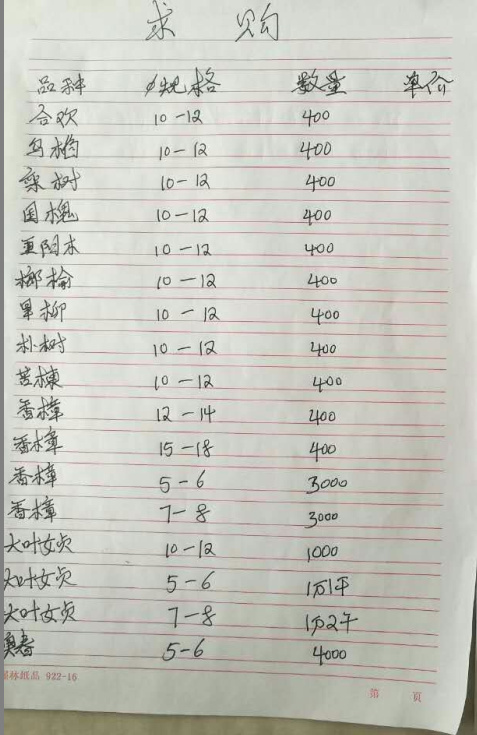 求购
品种 φ规格 数量 单价
合欢 10-12 400
乌桕 10-12 400
栾树 10-12 400
国槐 10-12 400
重阳木 10-12 400
榔榆 10-12 400
旱柳 10-12 400
朴树 10-12 400
苦楝 10-12 400
香樟 12-14 400
香樟 15-18 400
香樟 5-6 3000
香樟 7-8 3000
大叶女贞 10-12 1000
大叶女贞 5-6 1万1千
大叶女贞 7-8 1万2千
5-6 4000
纸品 922-16
第 页